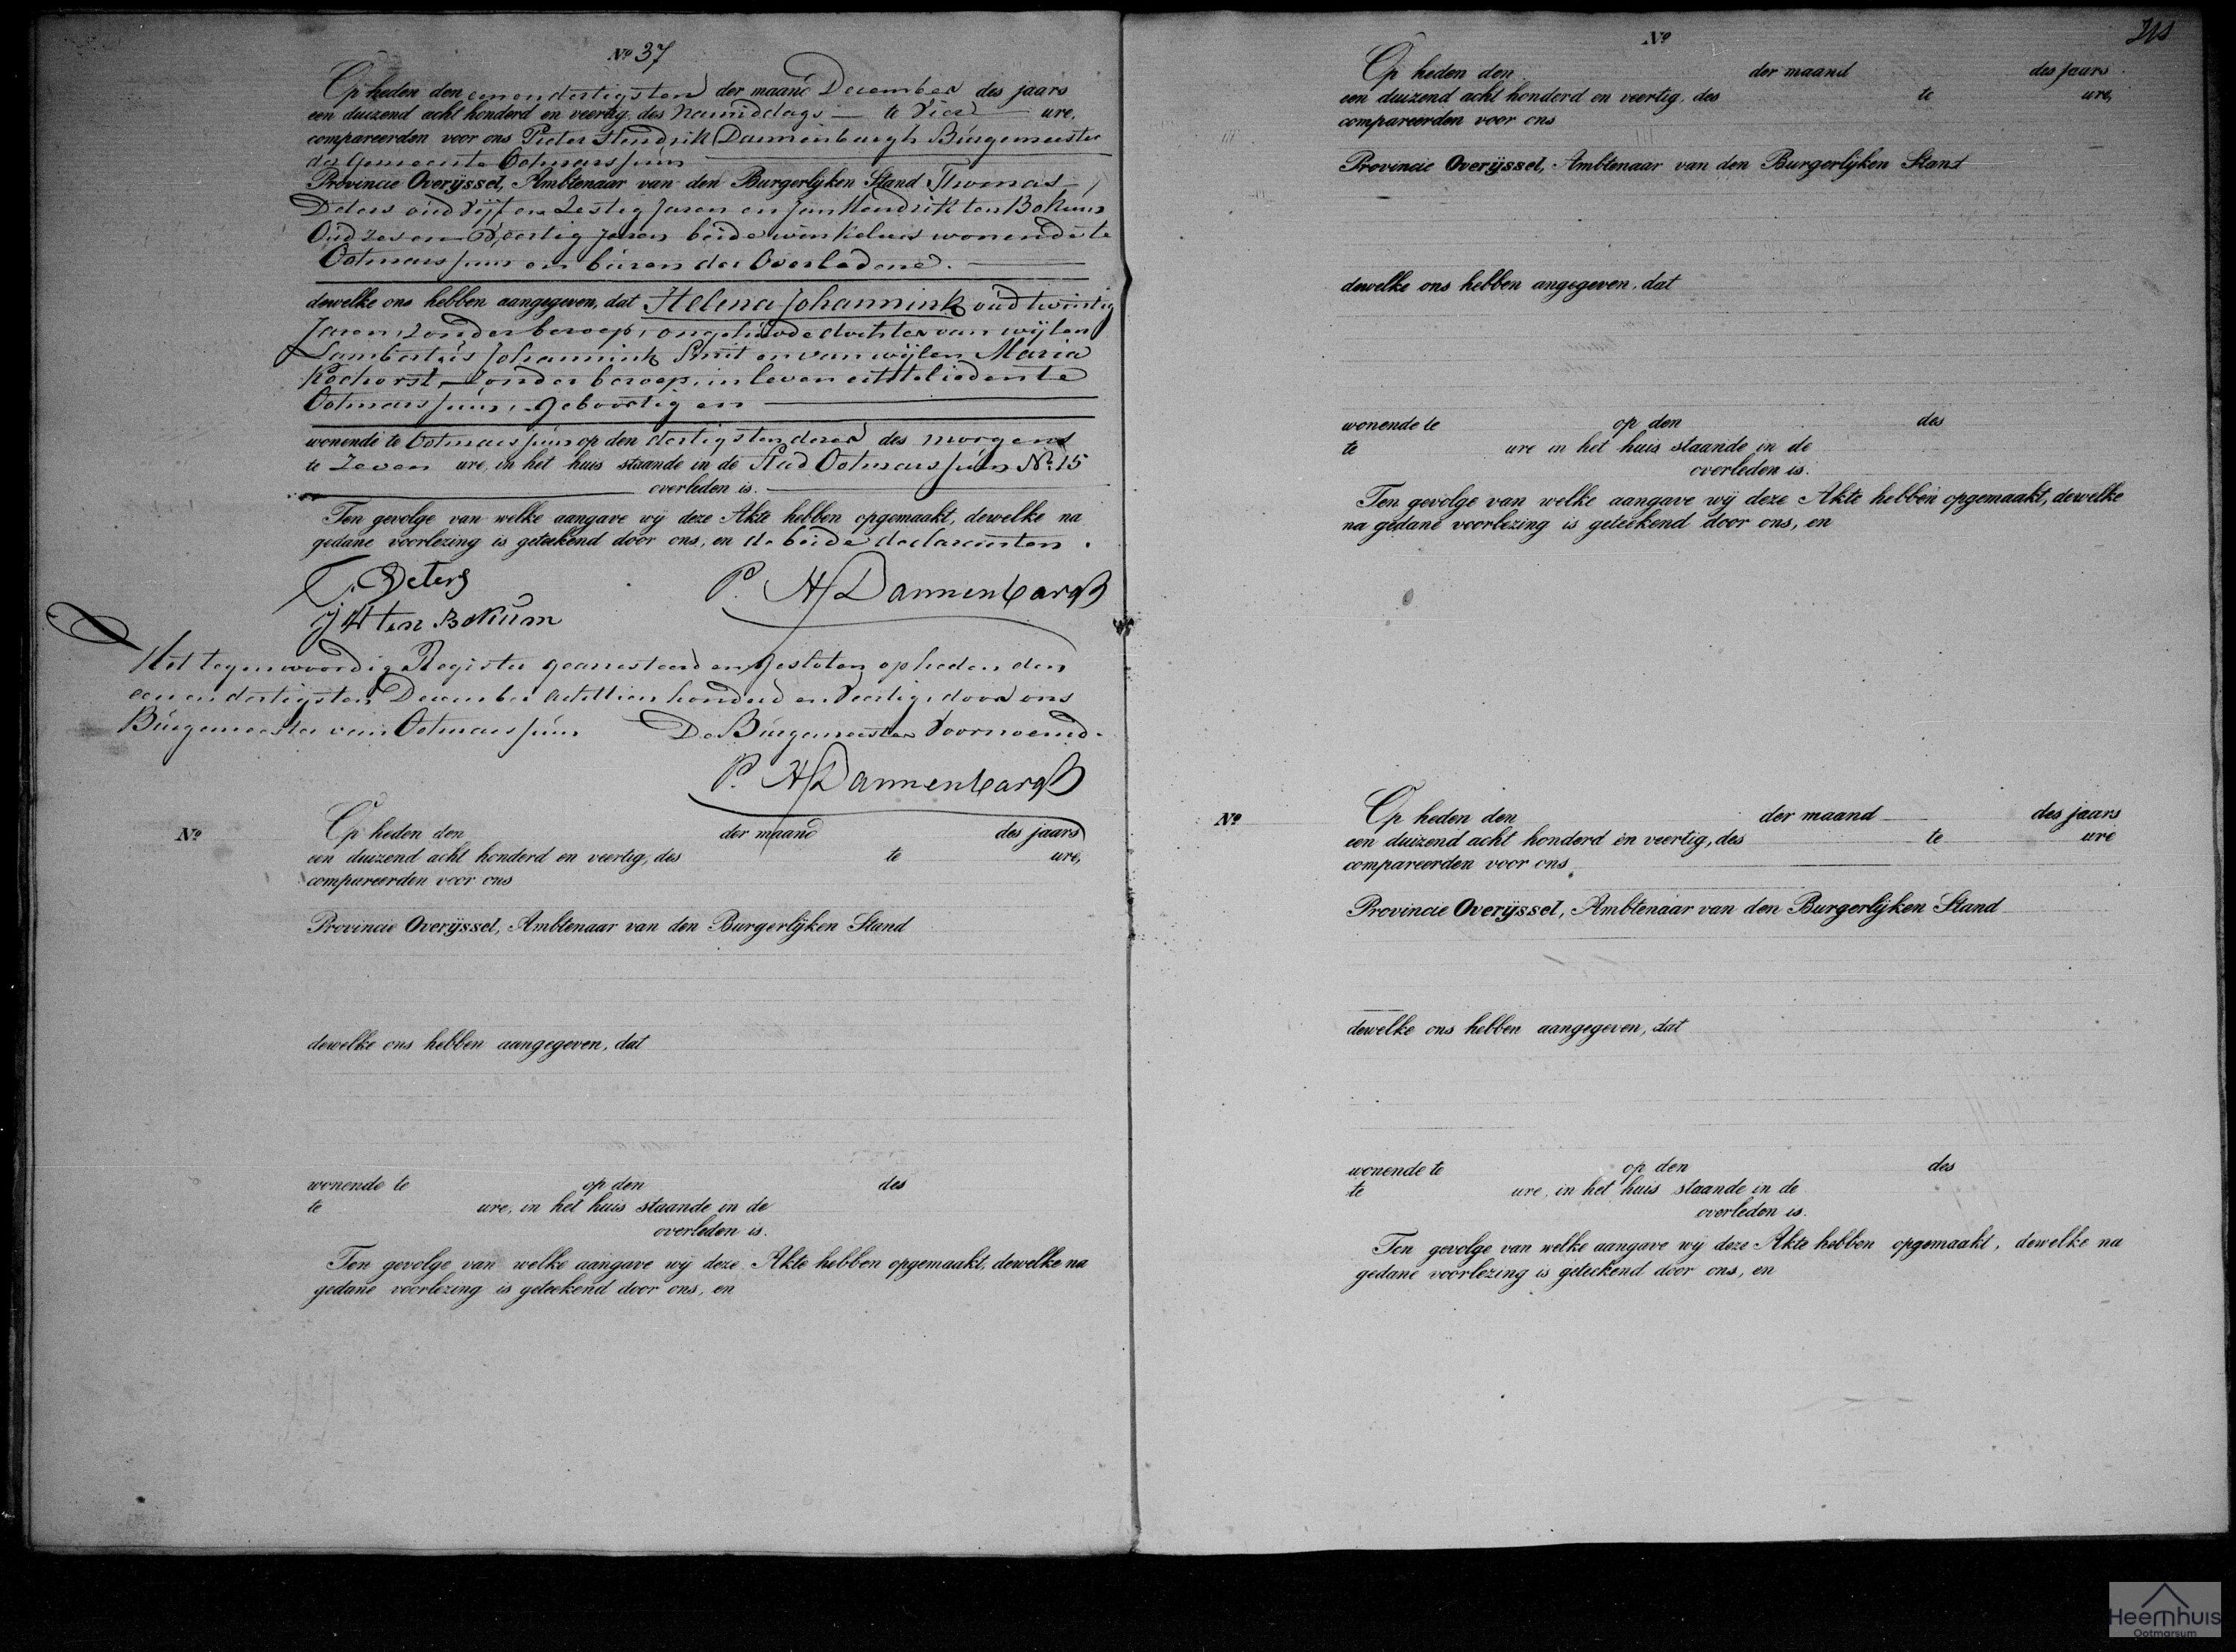 No 37
Op heden den eenendertigsten der maand December des jaars
een duizend acht honderd en veertig, des Namiddags te Vier ure,
compareerden voor ons Pieter Hendrik Dannenbargh Burgemeester
der Gemeente Ootmarssum
Provincie Overijssel, Ambtenaar van den Burgerlijken Stand Thomas
Deters oud Vijf en Zestig Jaren en Jan Hendrik ten Bokum
Oud Zeven en Veertig Jaren beide winkeliers wonende te
Ootmarssum en buren der Overledene.
dewelke ons hebben aangegeven, dat Helena Johannink oud twintig
Jaren, zonder beroep, ongehuwde dochter van wijlen
Lambertus Johannink Smit en van wijlen Maria
zonder beroep, in leven echtelieden te
Ootmarssum, geboortig en
wonende te Ootmarssum op den dertigsten dezer des morgens
te Zeven ure, in het huis staande in de Stad Ootmarssum No 15
overleden is.
Ten gevolge van welke aangave wij deze Akte hebben opgemaakt, dewelke na
gedane voorlezing is geteekend door ons, en de beide declaranten.
T. Deters
P. H. Dannenbargh
J H ten Bokum
Het tegenwoordig Register gearresteerd en gesloten op heden den
een en dertigsten December achttien honderd en Veertig, door ons
Burgemeester van Ootmarssum De Burgemeester Voornoemd.
P. H. Dannenbargh
No Op heden den der maand des jaars
een duizend acht honderd en veertig, des te ure,
compareerden voor ons
Provincie Overijssel, Ambtenaar van den Burgerlijken Stand
dewelke ons hebben aangegeven, dat
wonende te op den des
te ure, in het huis staande in de
overleden is.
Ten gevolge van welke aangave wij deze Akte hebben opgemaakt, dewelke na
gedane voorlezing is geteekend door ons, en
No
Op heden den der maand des jaars
een duizend acht honderd en veertig, des te ure,
compareerden voor ons
Provincie Overijssel, Ambtenaar van den Burgerlijken Stand
dewelke ons hebben angegeven, dat
wonende te op den des
te ure in het huis staande in de
overleden is.
Ten gevolge van welke aangave wij deze Akte hebben opgemaakt, dewelke
na gedane voorlezing is geteekend door ons, en
No Op heden den der maand des jaars
een duizend acht honderd en veertig, des te ure
compareerden voor ons
Provincie Overijssel, Ambtenaar van den Burgerlijken Stand
dewelke ons hebben aangegeven, dat
wonende te op den des
te ure, in het huis staande in de
overleden is.
Ten gevolge van welke aangave wij deze Akte hebben opgemaakt, dewelke na
gedane voorlezing is geteekend door ons, en
Heemhuis
Ootmarsum